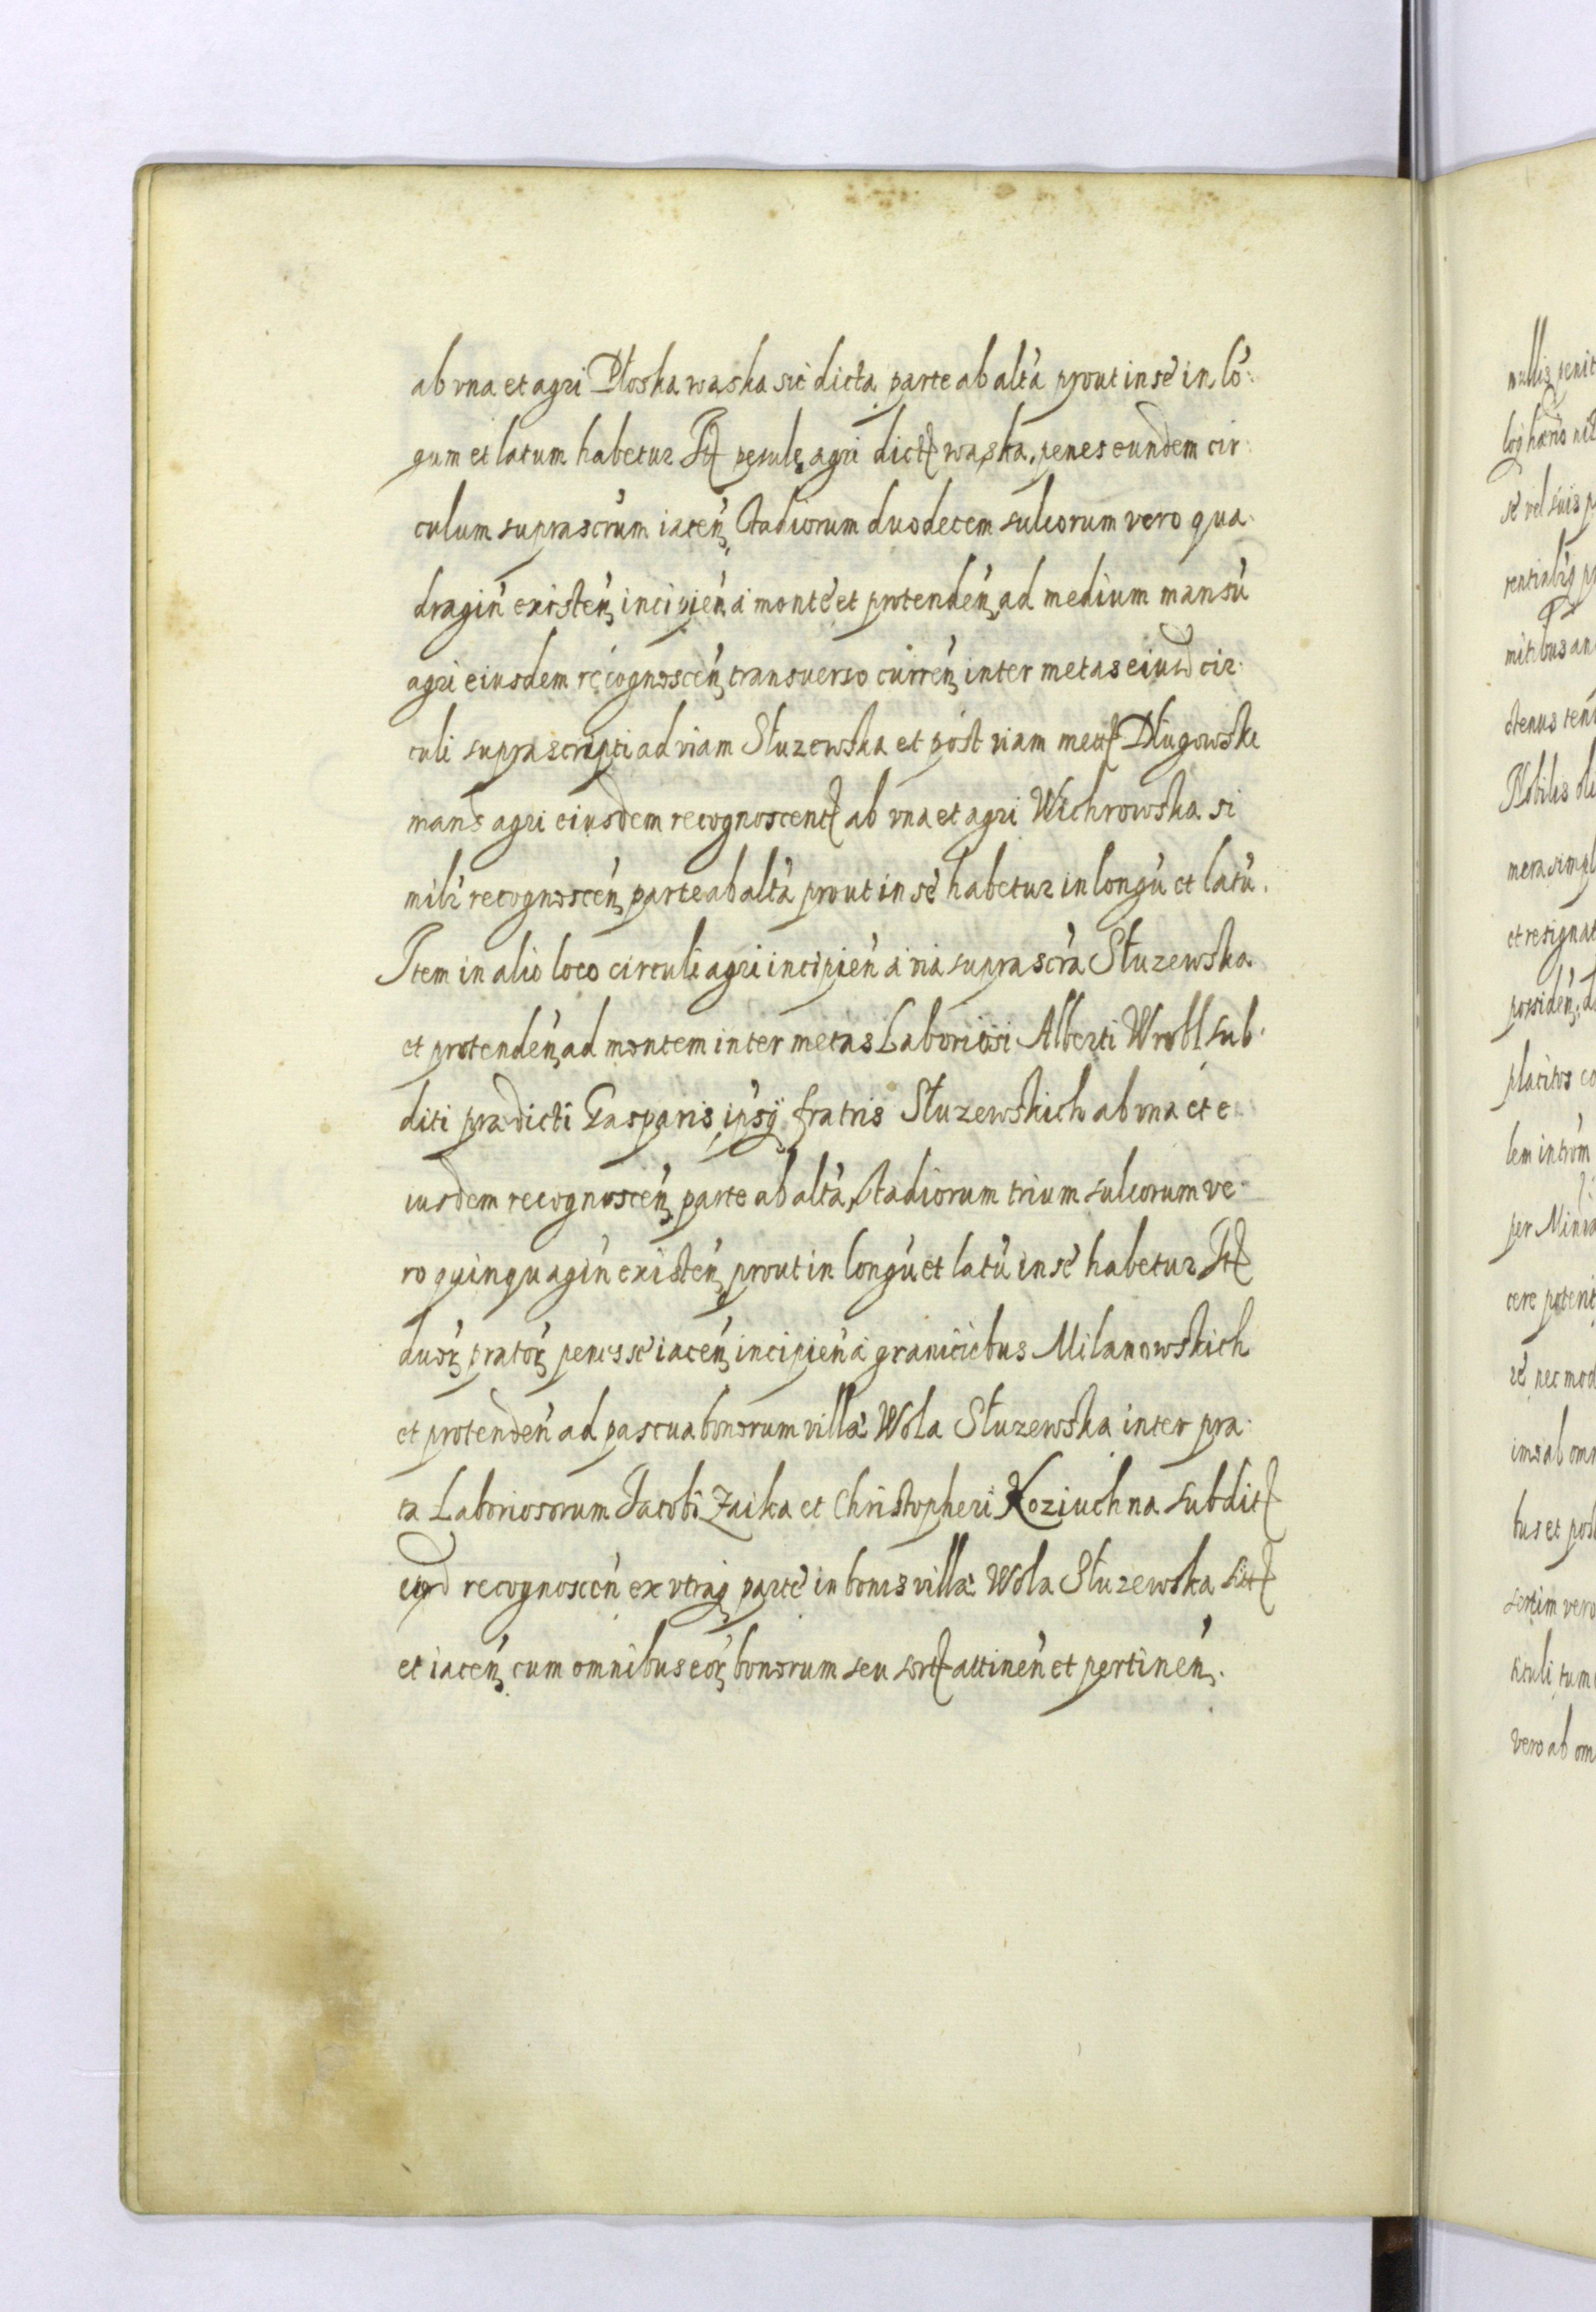 ab vna et agri Płoska waska sic dicta parte ab alt'a prout in se in lo:
gum et latum habetur It pesule agri dict waska, penes eundem cir:
culum suprascr'um iacen' stadiorum duodecem sulcorum vero qua:
dragin' existen' incipien' a monte et protenden' ad medium mansu'
agri eiusdem recognoscen' transuerso curren' inter metas eiusd cir:
culi suprascripti ad viam Słuzewska et post viam met Długowski
mans agri eiusdem recognoscent ab vna et agri Wichrowska si
milr' recognoscen' parte ab alt'a prout in se habetur in longu' et latu'.
Item in alio loco circuli agri incipien' a via suprascr'a Słuzewska
et protenden' ad montem inter metas Laboriosi Alberti Wrobl sub:
diti prædicti Gasparis ipsÿ fratris Słuzewskich ab vna et e
iusdem recognoscen' parte ab alt'a stadiorum trium sulcorum ve
ro quinquagin' existen' prout in longu' et latu' in se habetur It
duor' prator' penes se iacen' incipien' a graniciebus Milanowskich
et protenden' ad pascua bonorum villæ Wola Słuzewska inter pra:
ta Laboriosorum Jacobi Zaika et Christopheri Koziuchna subdit
eiusd recognoscen' ex vtraq parte in bonis villæ Wola Słuzewska sit
et iacen' cum omnibus eor' bonorum seu sort attinen' et pertinen'.
nullis
se vel suis
mitibus
Nobilis
et resignat
placitos
per
vero ab om